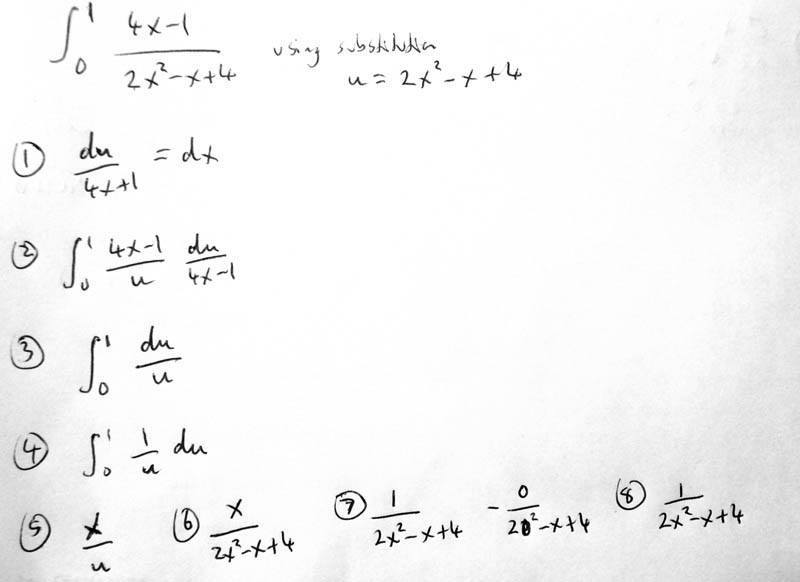 ∫₀¹ (4x-1)/(2x²-x+4) using substitution
u = 2x²-x+4
① du/(4x+1) = dx
② ∫₀¹ (4x-1)/u du/(4x-1)
③ ∫₀¹ du/u
④ ∫₀¹ 1/u du
⑤ x/u ⑥ x/(2x²-x+4) ⑦ 1/(2x²-x+4) - 0/(20²-x+4) ⑧ 1/(2x²-x+4)